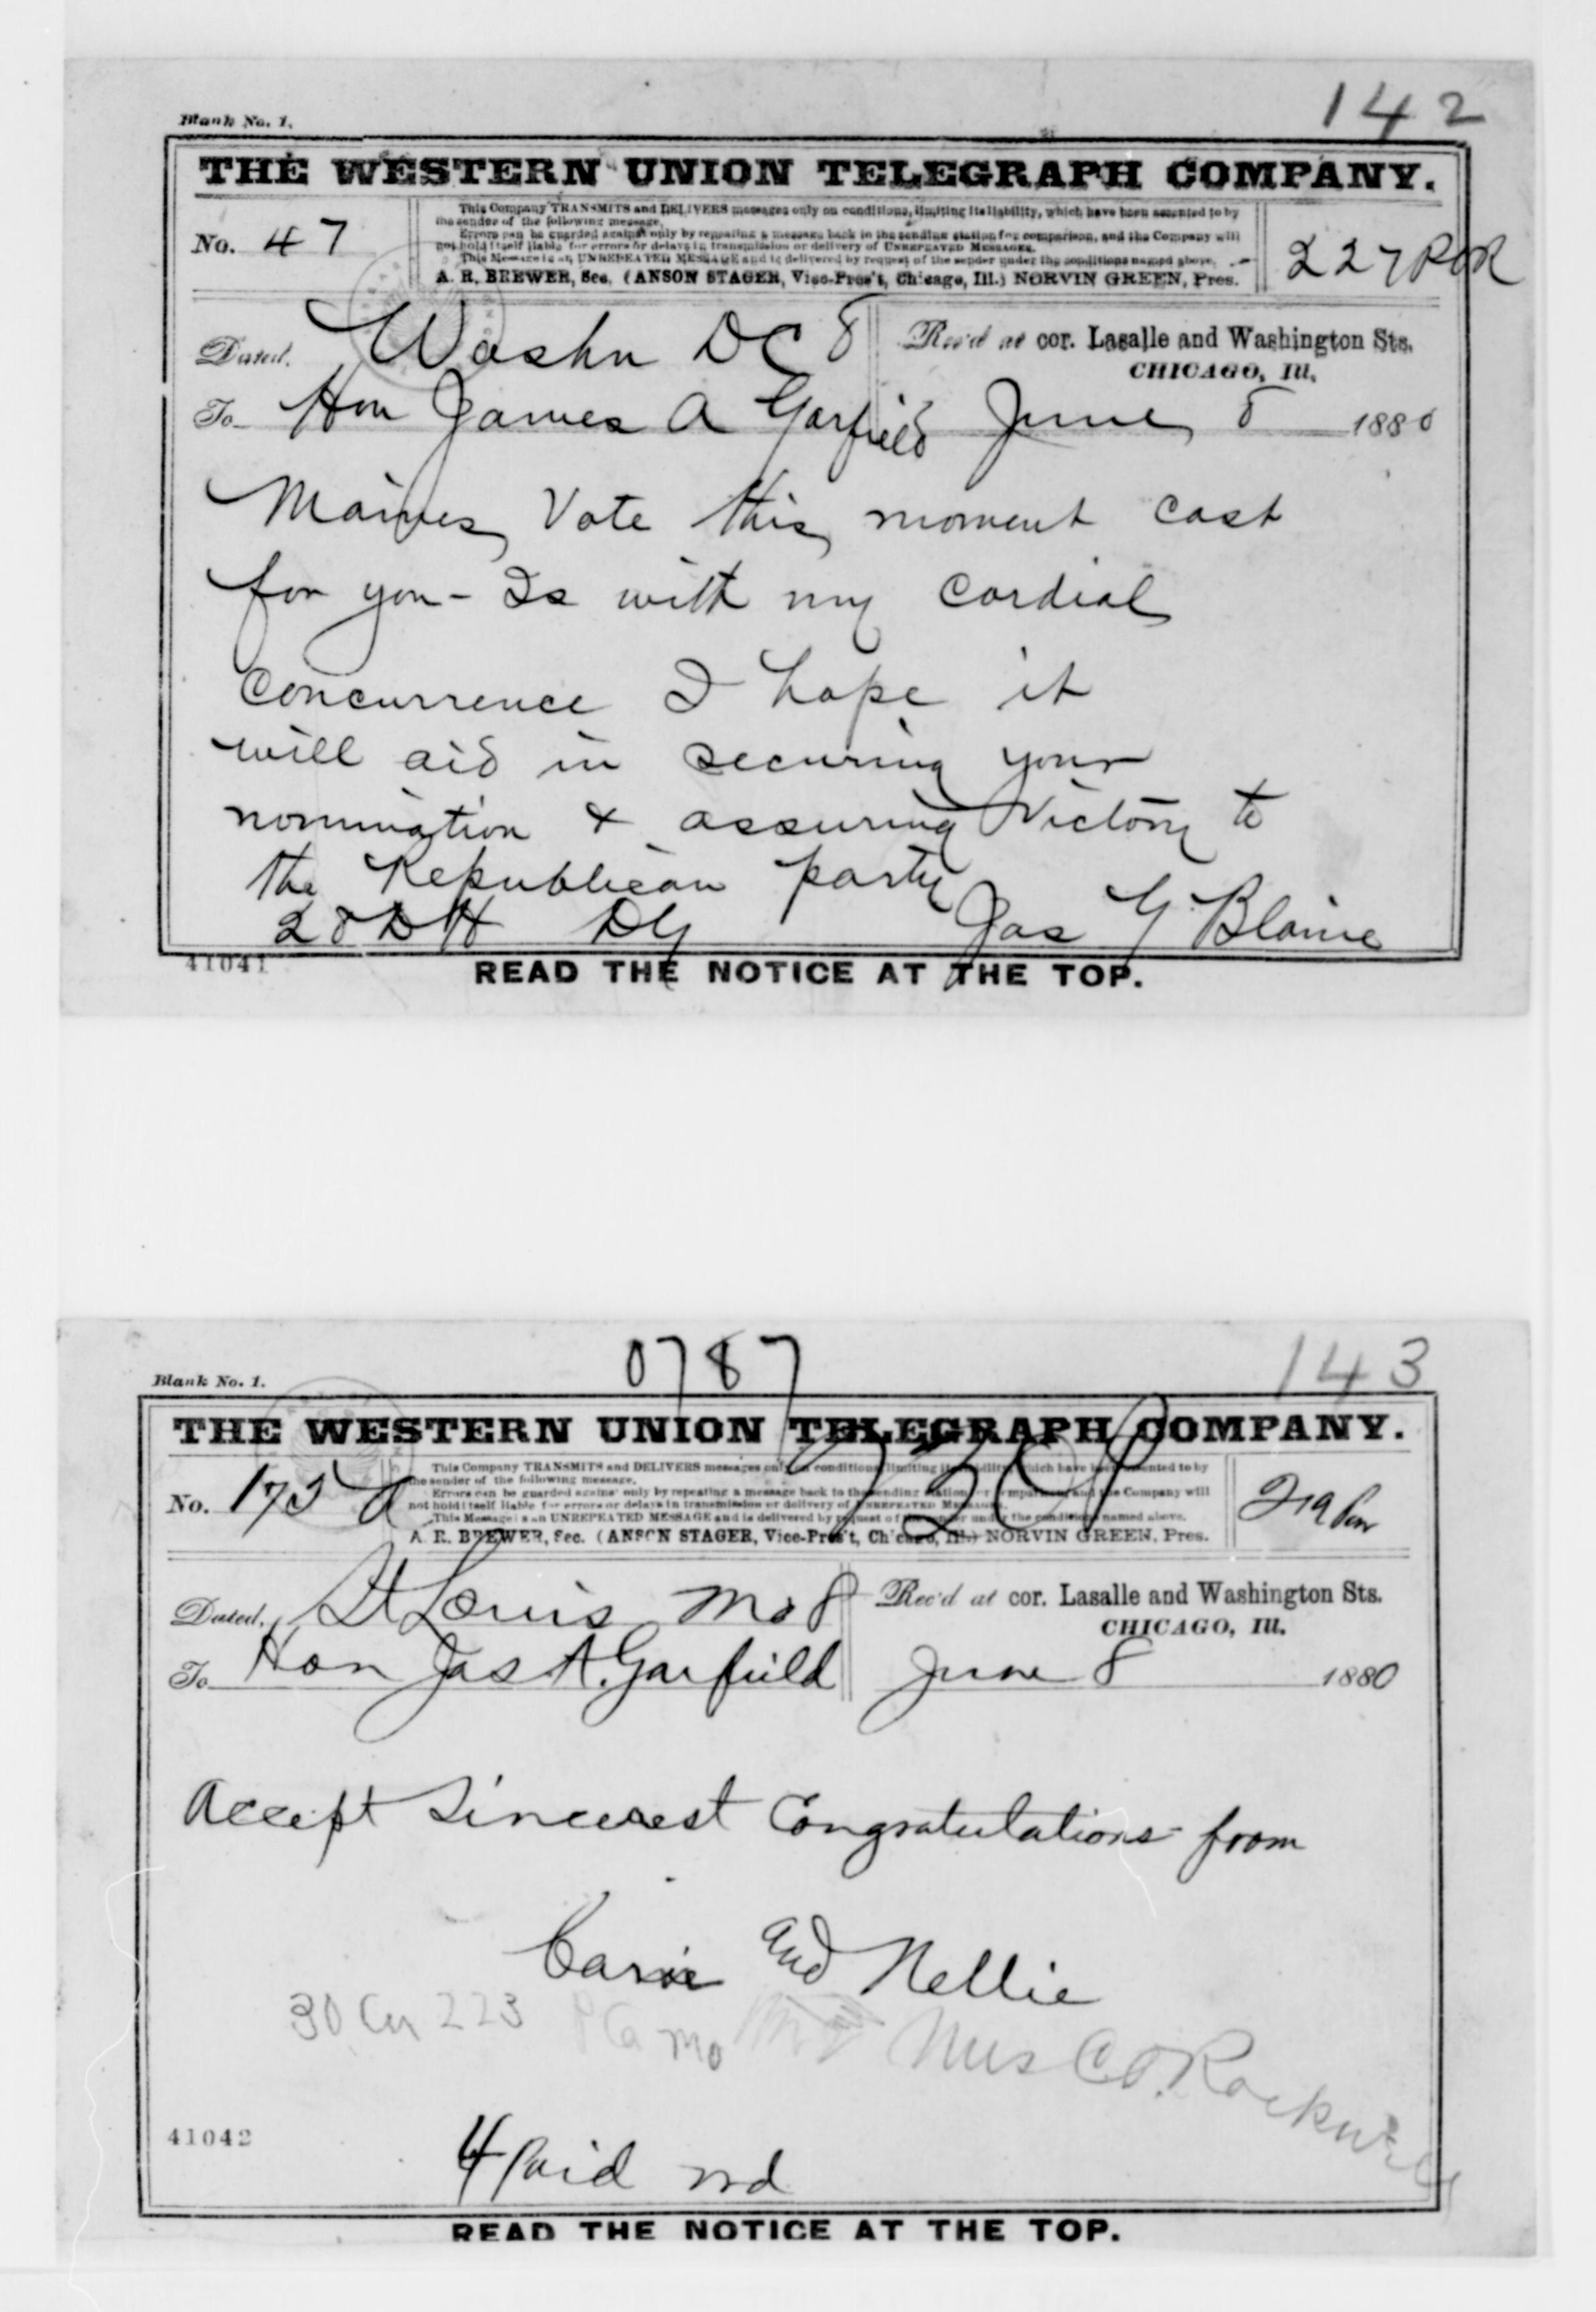 142
Blank No. 1.
THE WESTERN UNION TELEGRAPH COMPANY.
This Company TRANSMITS and DELIVERS messages only on conditions, limiting its liability, which have been assented to by
the sender of the following message.
Errors can be guarded against only by repeating a message back to the sending station for comparison, and the Company will
not hold itself liable for errors or delays in transmission or delivery of UNREPEATED MESSAGES.
This Message is an UNREPEATED MESSAGE and is delivered by request of the sender under the conditions named above.
A. R. BREWER, Sec. (ANSON STAGER, Vice-Pres't, Chicago, Ill.) NORVIN GREEN, Pres.
No. 47
227
Dated. Washn DC 8
Rec'd at cor. Lasalle and Washington Sts.
CHICAGO, Ill.
To Hon James A Garfield June 8 1880
Maines Vote this moment cast
for you - Is with my cordial
concurrence I hope it
will aid in securing your
nomination & assuring Victory to
the Republican party
28 DH DG Jas G Blaine
41041
READ THE NOTICE AT THE TOP.
0787
143
Blank No. 1.
THE WESTERN UNION TELEGRAPH COMPANY.
This Company TRANSMITS and DELIVERS messages only on conditions, limiting its liability, which have been assented to by
the sender of the following message.
Errors can be guarded against only by repeating a message back to the sending station for comparison, and the Company will
not hold itself liable for errors or delays in transmission or delivery of UNREPEATED MESSAGES.
This Message is an UNREPEATED MESSAGE and is delivered by request of the sender under the conditions named above.
A. R. BREWER, Sec. (ANSON STAGER, Vice-Pres't, Chicago, Ill.) NORVIN GREEN, Pres.
No. 175
219 Pm
Dated. St Louis Mo 8
Rec'd at cor. Lasalle and Washington Sts.
CHICAGO, Ill.
To Hon Jas A. Garfield June 8 1880
Accept Sincerest Congratulations from
Carrie and Nellie
30 223 Mo Mrs C. O. Rockwell
41042
4 Paid
READ THE NOTICE AT THE TOP.